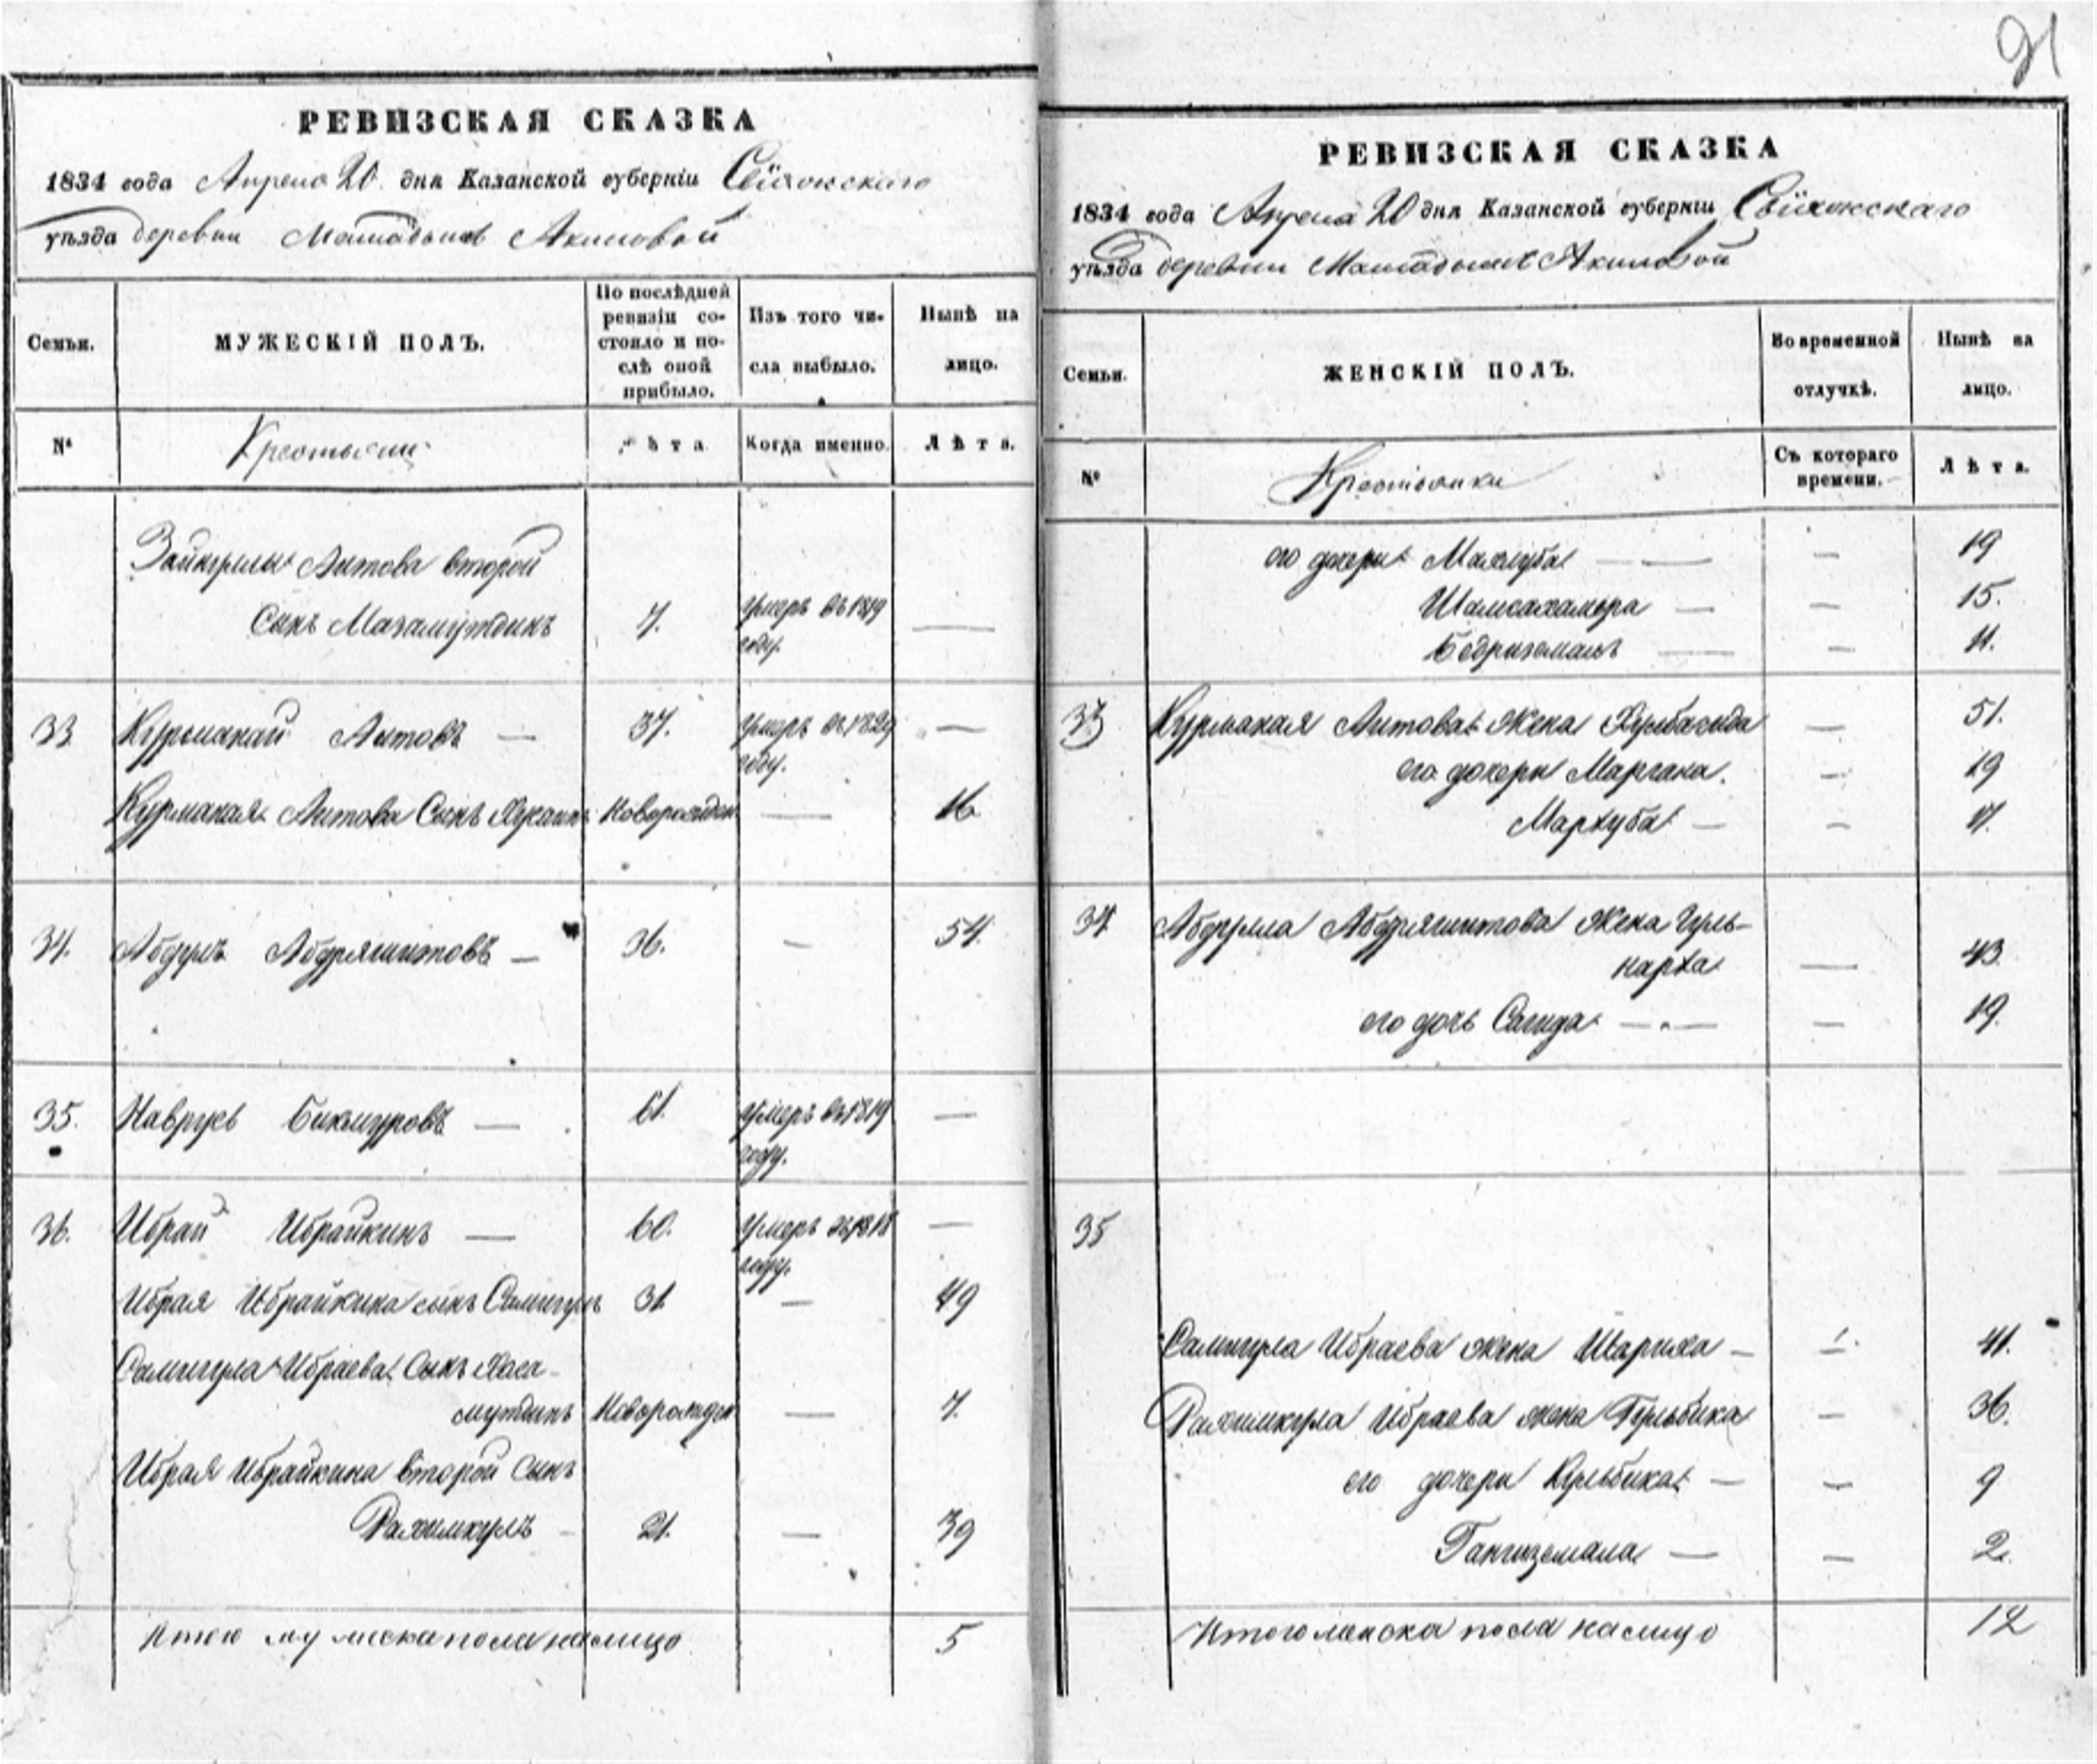 91
РЕВИЗСКАЯ СКАЗКА
1834 года Апреля 20 дня Казанской губерніи Свіяжскаго
уѣзда деревни Акиловой
Семьи.
МУЖЕСКІЙ ПОЛЪ.
По послѣдней ревизіи со-
стояло и по-
слѣ оной
прибыло.
Изъ того чи-
сла выбыло.
Нынѣ на
лицо.
№
Крестьяни
Лѣта
Когда именно.
Лѣта.
Зайнгулы Аитова второй
сынъ 7. Умеръ въ 1819 —
году.
33 Курмакай Аитовъ — 37. Умеръ въ —
году.
Курмакая Аитова Сынъ Новорожден — 16
34. Абдулъ Абдряшитовъ — 36. — 54.
35. Наврузъ Бикмуровъ — 61. Умеръ въ 1819 —
году.
36. Ибрай Ибрайкинъ — 60. Умеръ въ 1818 —
году.
Ибрая Ибрайкина сынъ Самигулъ 31 — 49
Самигула Ибраева Сынъ Хаса-
мутдинъ Новорожден — 7.
Ибрая Ибрайкина второй сынъ
Рахимкулъ - 21. — 39
Итого мужеска пола налицо 5
РЕВИЗСКАЯ СКАЗКА
1834 года Апреля 20 дня Казанской губерніи Свіяжскаго
уѣзда деревни Акиловой
Семьи.
ЖЕНСКІЙ ПОЛЪ.
Во временной
отлучкѣ.
Нынѣ на
лицо.
№
Крестьянки
Съ котораго
времени.
Лѣта.
его дочери Махлуба — — 19
Шамсикамыра — — 15.
Бедриземалъ — — 11.
33 Курмакая Аитова жена — 51.
его дочери Маргана. — 19
Мархуба — —
34 Абдулла Абдряшитова жена Гуль-
нарха — 43
его дочь Сагида — — 19.
35
Самигула Ибраева жена Шариха — — 41.
Рахимкула Ибраева жена Гульбика — 36.
его дочери Кульбика — — 9
— — 2.
Итого женска пола налицо 12